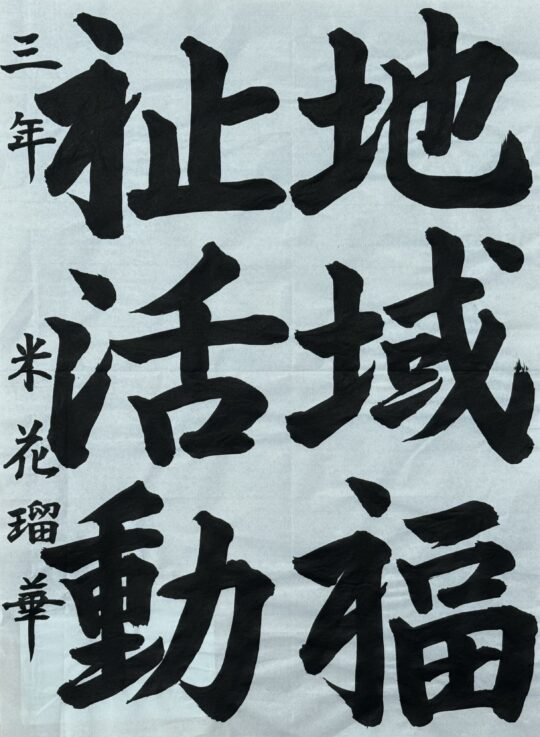 地域福
祉活動
三年 米花瑠華